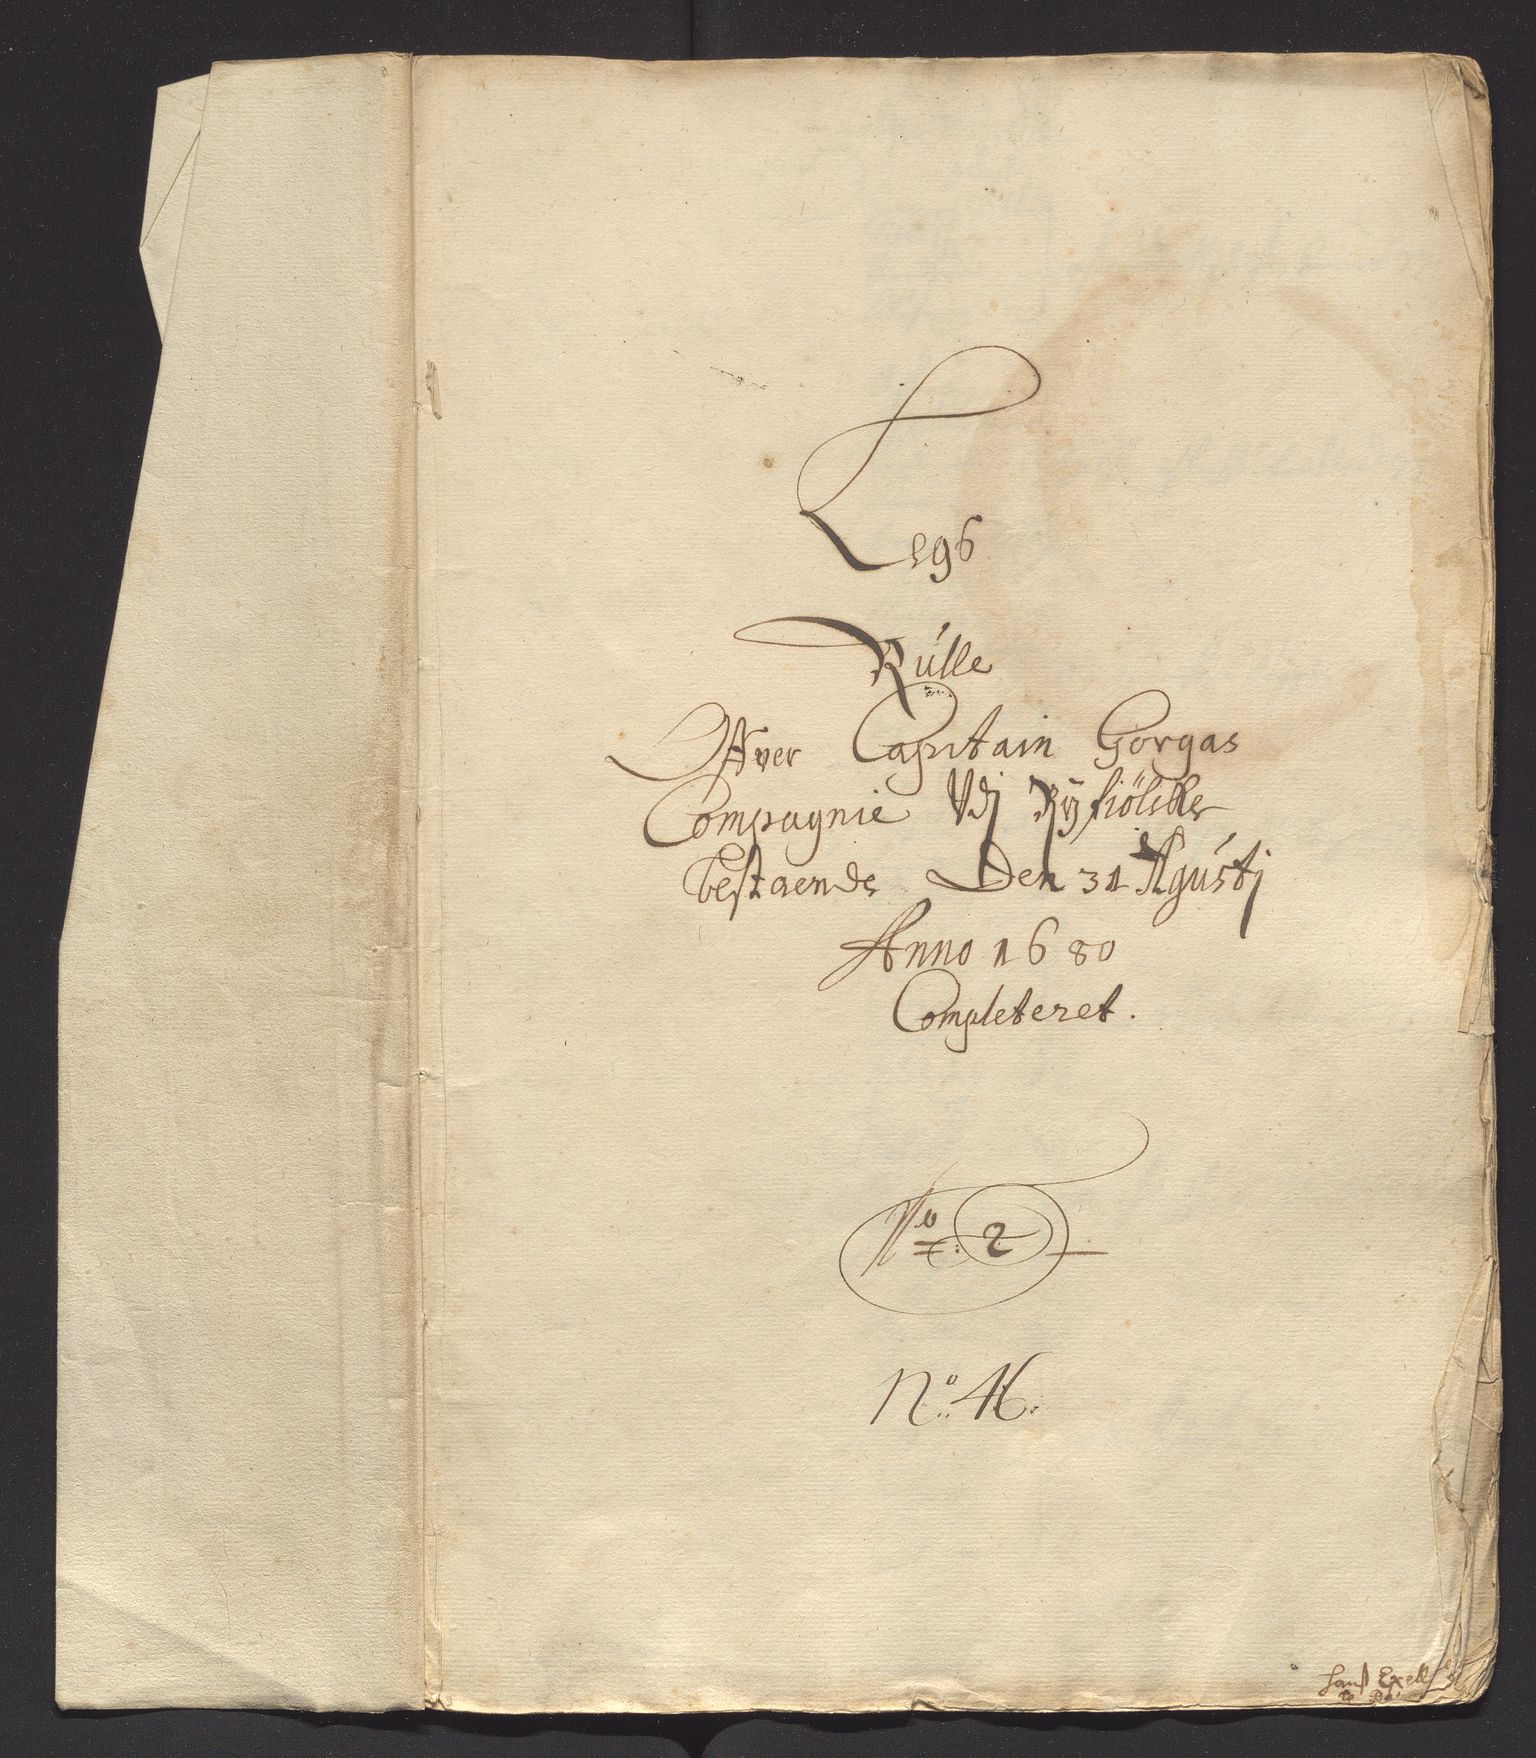 Legs
Rúlle
Offver Capitain Gorgas
Compagnie Udj Rÿfiölcke
bestaende Den 31 Agústj
Anno 1680
Completeret.
No: 2
No: 46.
Hanß Exell